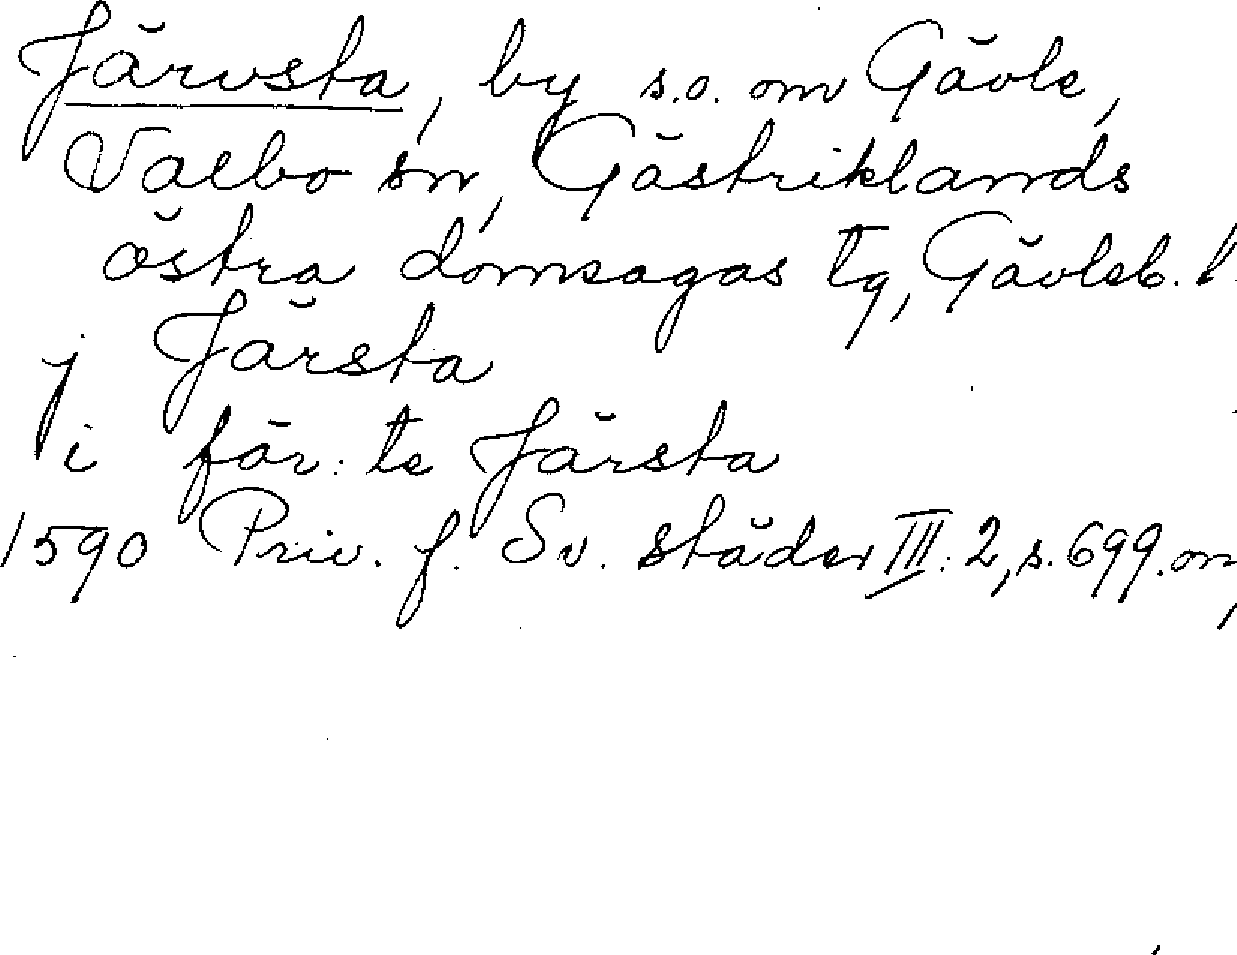 Järvsta, by s.o. om Gävle,
Valbo sn, Gästriklands
östra domsagas tg, Gävleb. l
j Järsta
i för: te Järsta
1590 Priv. f. Sv. städer III: 2, s. 699. or,